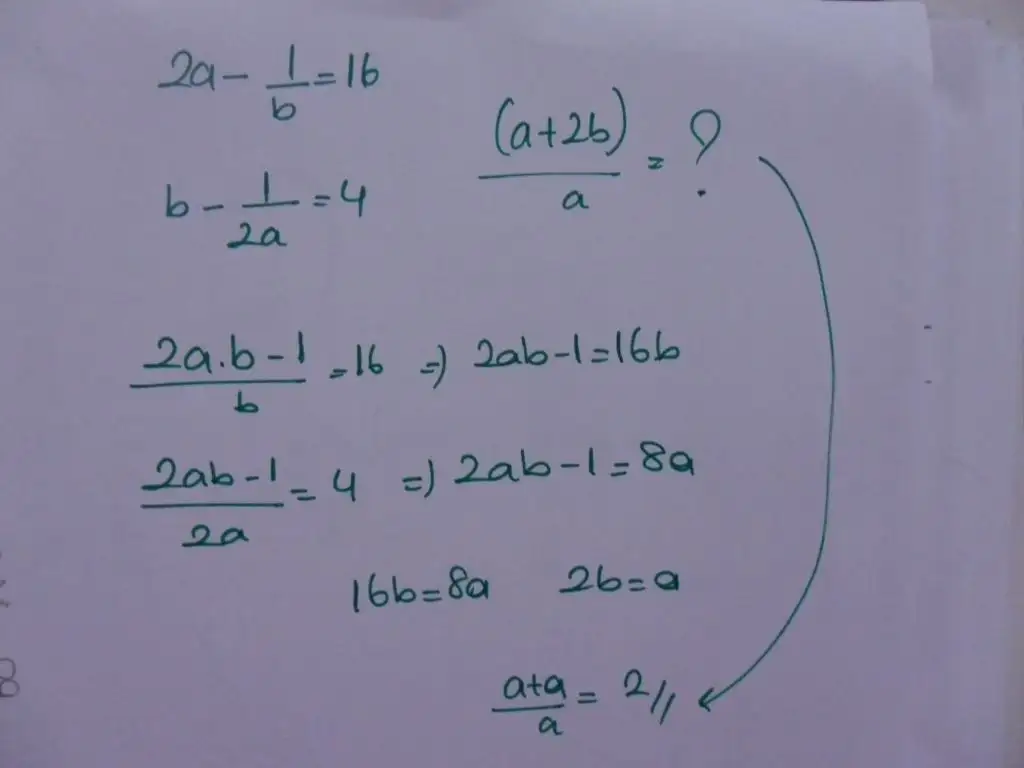 2a - 1/b = 16
b - 1/2a = 4
(a+2b)/a = ?
2a.b - 1/b = 16 => 2ab - 1 = 16b
2ab - 1/2a = 4 => 2ab - 1 = 8a
16b = 8a 2b = a
a+a/a = 2//
8